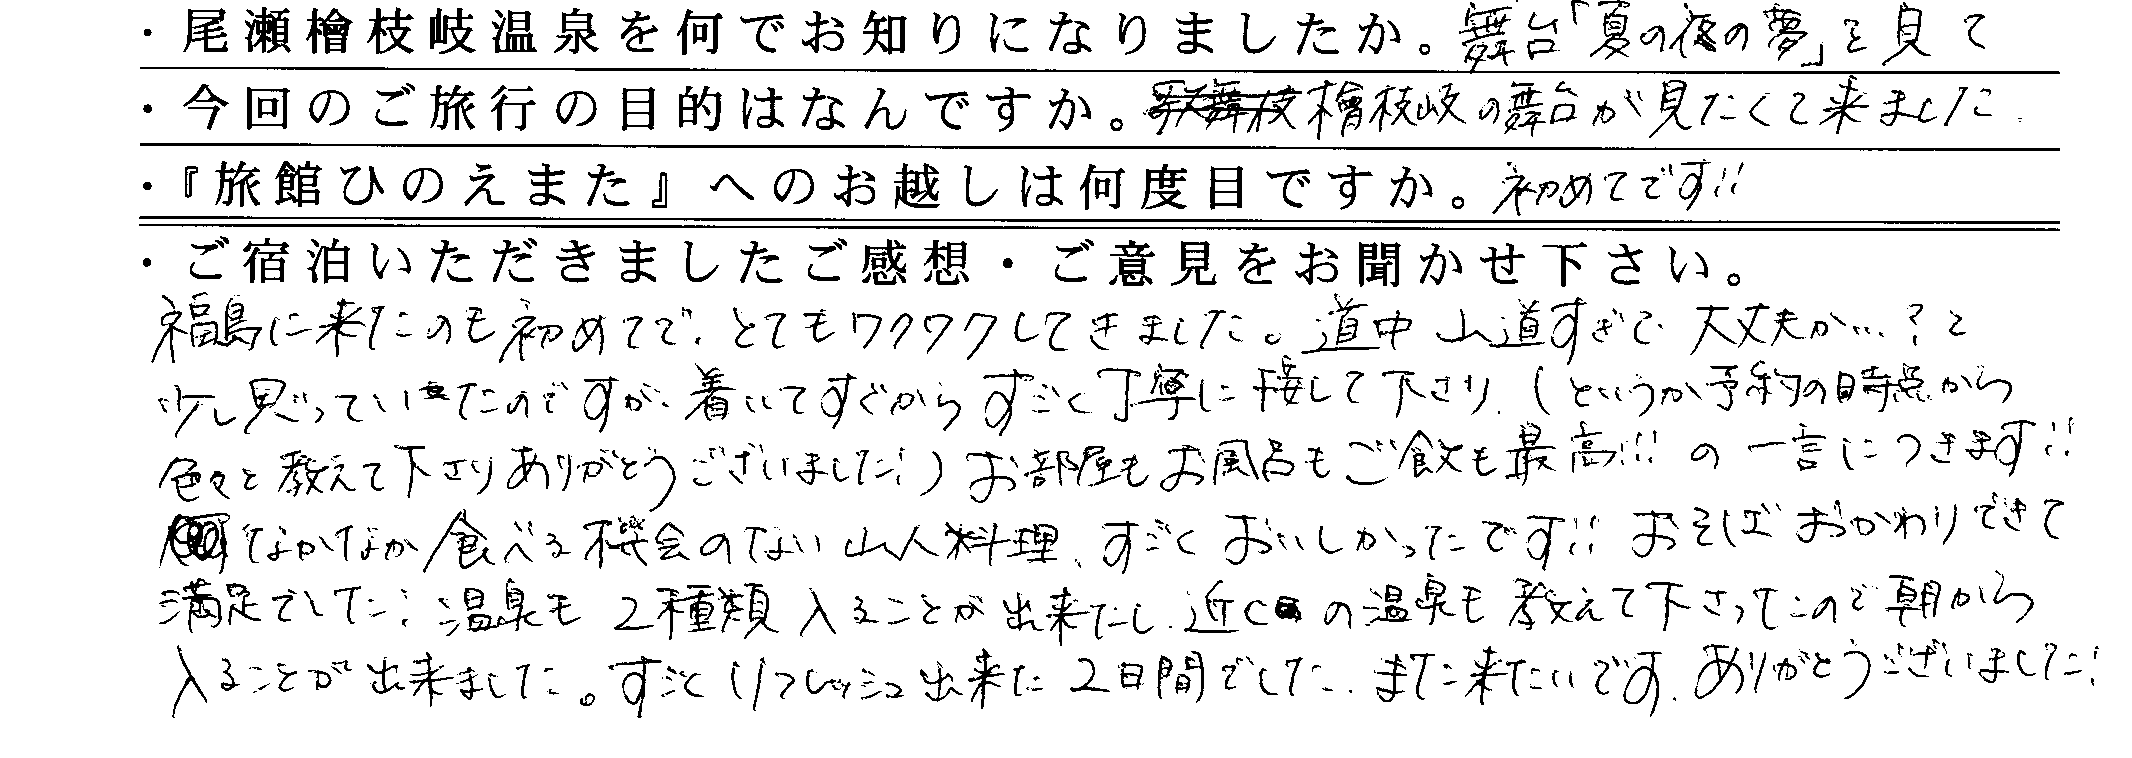 ・尾瀬檜枝岐温泉を何でお知りになりましたか。舞台「夏の夜の夢」を見て
・今回のご旅行の目的はなんですか。檜枝岐の舞台が見たくて来ました.
・『旅館ひのえまた』へのお越しは何度目ですか。初めてです!!
・ご宿泊いただきましたご感想・ご意見をお聞かせ下さい。
福島に来たのも初めてで、とてもワクワクしてきました。道中 山道すぎて 大丈夫か…?と
少し思っていたのですが、着いてすぐからすごく丁寧に接して下さり、(というか予約の時点から
色々と教えて下さりありがとうございました!)お部屋もお風呂もご飯も最高!!! の一言につきます!!
なかなか食べる機会のない山人料理、すごくおいしかったです!! おそばおかわりできて
満足でした! 温泉も2種類入ることが出来たし、近くの温泉も教えて下さったので朝から
入ることが出来ました。すごくリフレッシュ出来た2日間でした、また来たいです、ありがとうございました!